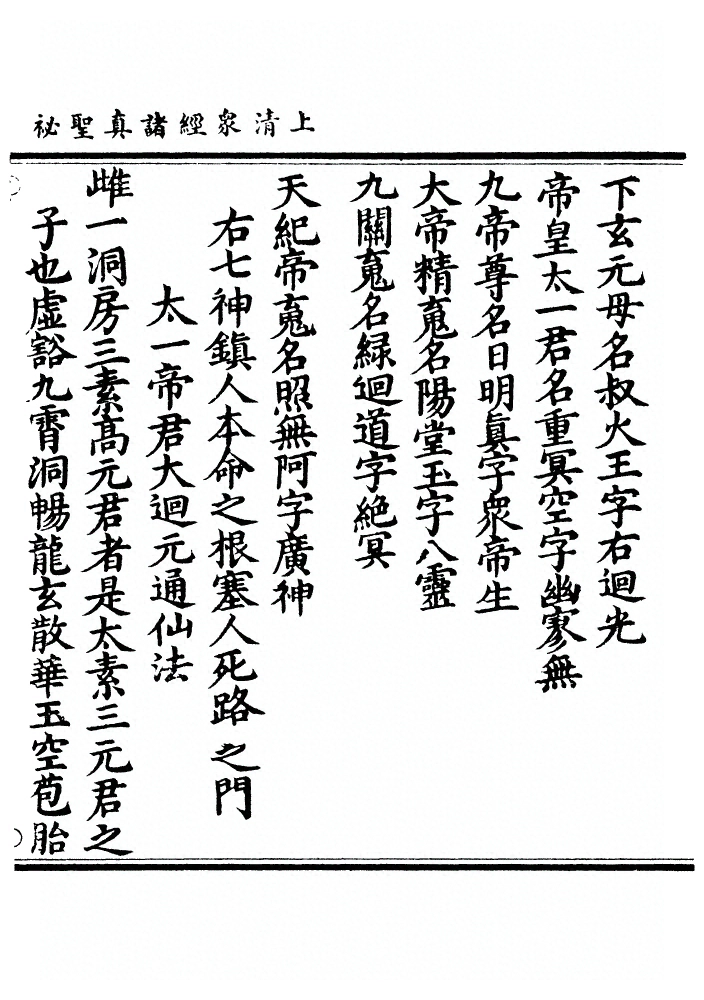 上清衆經諸真聖祕
下玄元母名叔火王字右迴光
帝皇太一君名重冥空字幽寥無
九帝尊名日明真字衆帝生
大帝精䰟名陽堂玉字八靈
九關䰟名緑迴道字絶冥
天紀帝䰟名照無阿字廣神
右七神鎮人本命之根塞人死路之門
太一帝君大迴元通仙法
雌一洞房三素髙元君者是太素三元君之
子也虛豁九霄洞暢龍玄散華玉空苞胎